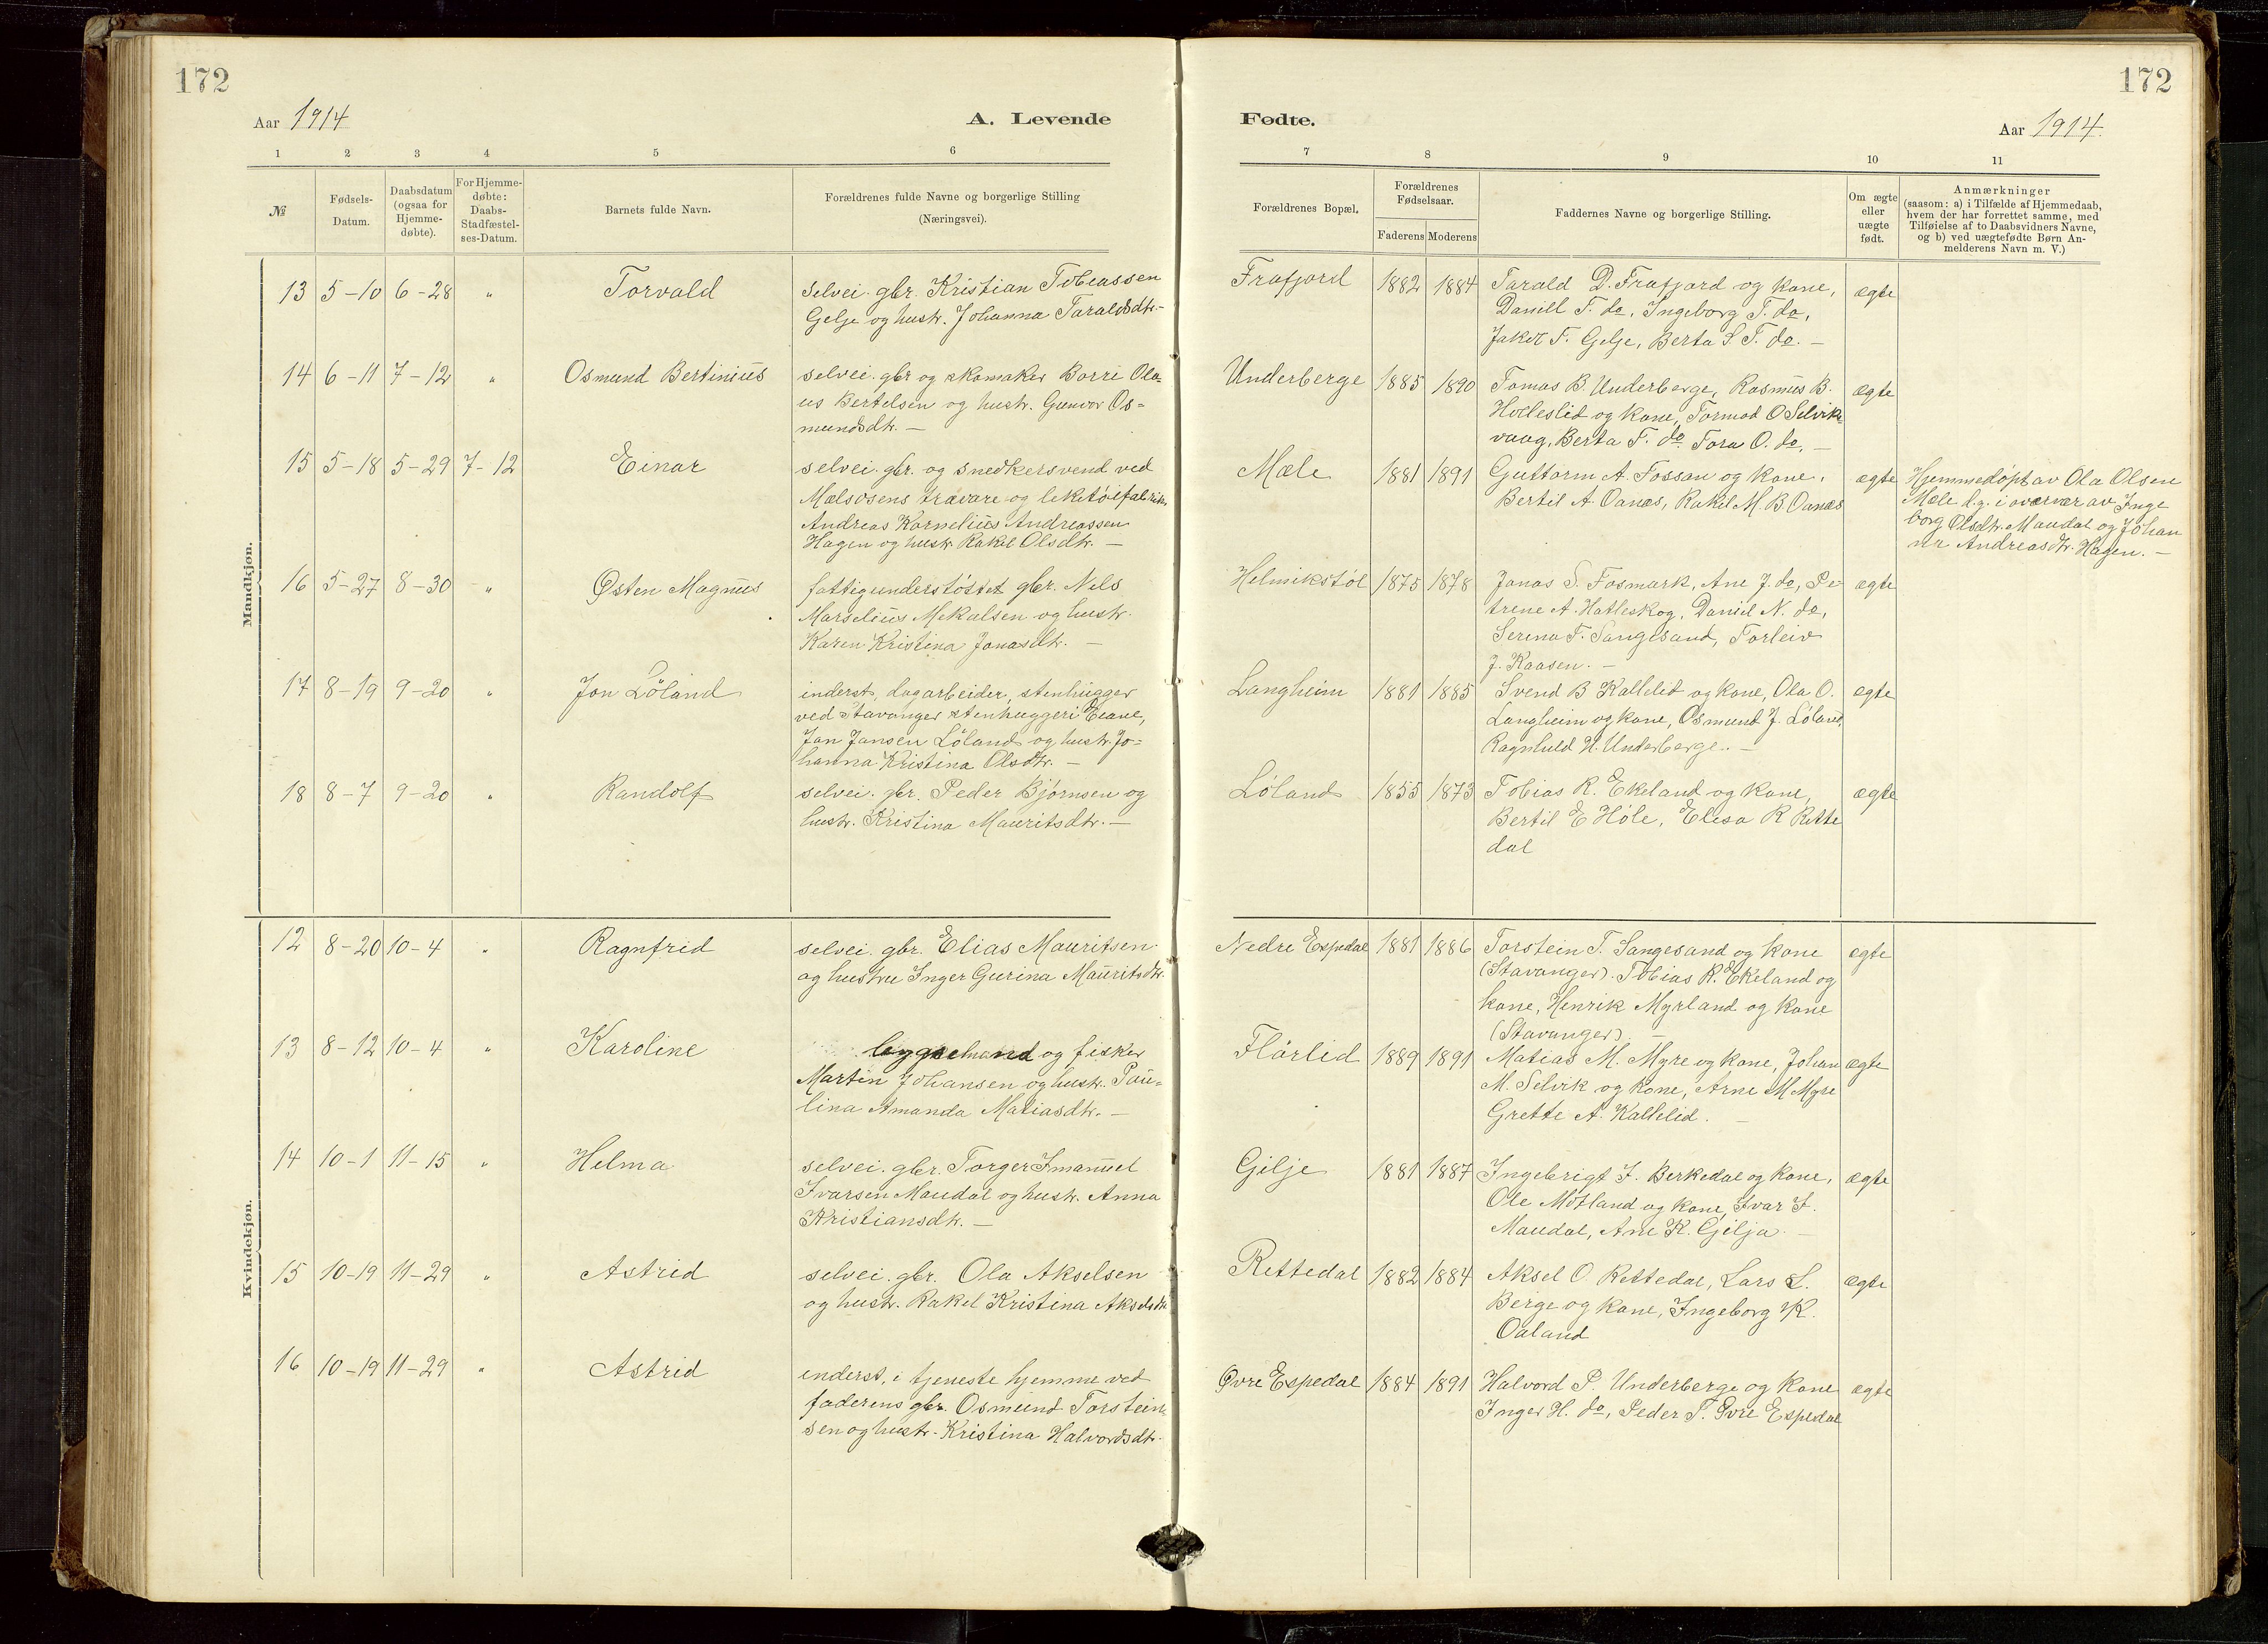 172
172
Aar 1914
A. Levende
Fødte.
Aar 1914.
1 2 3 4 5 6 7 8 9 10 11
№
Fødsels-
Datum.
Daabsdatum
(ogsaa for
Hjemme-
døbte).
For Hjemme-
døbte:
Daabs-
Stadfæstel-
ses-Datum.
Barnets fulde Navn.
Forældrenes fulde Navne og borgerlige Stilling
(Næringsvei).
Forældrenes Bopæl.
Forældrenes
Fødselsaar.
Faderens Moderens
Faddernes Navne og borgerlige Stilling.
Om ægte
eller
uægte
født.
Anmærkninger
(saasom: a) i Tilfælde af Hjemmedaab,
hvem der har forrettet samme, med
Tilføielse af to Daabsvidners Navne,
og b) ved uægtefødte Børn An-
melderens Navn m. V.)
Mandkjøn.
13 5-10 6-28 " Torvald
selvei. gbr. Kristian Tobiassen
Gelje og hustr. Johanna Taraldsdtr.-
Frafjord 1882 1884
Tarald D. Frafjord og kone,
Daniel T. do, Ingeborg T. do,
Jakob T. Gelje, Berta S. T. do. -
ægte
14 6-11 7-12 " Osmund Bertinius
selvei. gbr og skomaker Borre Ola-
us Bertelsen og hustr. Gunvor Os-
mundsdtr. -
Underberge 1885 1890
Tomas B. Underberge, Rasmus B.
Holleslid og kone, Tormod O Selvik-
vaag, Berta T. do Tora O. do. -
ægte
15 5-18 5-29 7-12 Einar
selvei. gbr. og snedkersvend ved
Mælsosens trævare og leketøifabrik
Andreas Kornelius Andreassen
Hagen og hustr Rakel Olsdtr. -
Mæle 1881 1891
Guttorm A. Fossan og kone,
Bertil A. Oanæs, Rakel M. B Oanæs
ægte
Hjemmedøpt av Ola Olsen
Mæle l.g. i overvær av Inge
borg Olsdtr. Maudal og Johan
na Andreasdtr. Hagen. -
16 5-27 8-30 " Østen Magnus
fattigunderstøttet gbr. Nels
Marselius Mekalsen og hustr.
Karen Kristina Jonasdtr. -
Helmikstøl 1875 1878
Jonas S. Fosmark, Ane J. do, Pe-
trene A. Hatleskog, Daniel N. do,
Serina T. Sangesand, Torleiv
J. Kaasen. -
ægte
17 8-19 9-20 " Jon Løland
inderst, dagarbeider, stenhugger
ved Stavanger stenhuggeri Eiane,
Jon Jansen Løland og hustr. Jo-
hanna Kristina Olsdtr. -
Langheim 1881 1885
Svend B Kallelid og kone, Ola O.
Langheim og kone, Osmund J. Løland,
Ragnhild H. Underberge. -
ægte
18 8-7 9-20 " Randolf
selvei. gbr. Peder Bjørnsen og
hustr. Kristina Mauritsdtr. -
Løland 1855 1873
Tobias R. Ekeland og kone,
Bertil E Høle, Elisa R Rette
dal
ægte
Kvindekjøn.
12 8-20 10-4 " Ragnfrid
selvei. gbr. Elias Mauritsen
og hustru Inger Gurina Mauritsdtr.
Nedre Espedal 1881 1886
Torstein T. Sangesand og kone
(Stavanger). Tobias R. Ekeland og
kone, Henrik Myrland og kone
(Stavanger). -
ægte
13 8-12 10-4 " Karoline
byggselmand og fisker
Martin Johansen og hustr. Pau-
lina Amanda Matiasdtr. -
Flørlid 1889 1891
Matias M. Myre og kone, Johan
M. Selvik og kone, Arne M Myre
Grette A. Kallelid. -
ægte
14 10-1 11-15 " Helma
selvei. gbr. Torger Imanuel
Ivarsen Maudal og hustr. Anna
Kristiansdtr. -
Gilje 1881 1887
Ingebrigt J. Berkedal og kone,
Ole Motland og kone, Ivar I.
Maudal, Ane K. Gilja. -
ægte
15 10-19 11-29 " Astrid
selvei. gbr. Ola Akselsen
og hustr. Rakel Kristina Akselsdtr
Rettedal 1882 1884
Aksel O. Rettedal, Lars S.
Berge og kone, Ingeborg K.
Oaland
ægte
16 10-19 11-29 " Astrid
inderst, i tjeneste hjemme ved
faderens gbr. Osmund Torstein-
sen og hustr. Kristina Halvordsdtr.
Øvre Espedal 1884 1891
Halvord P. Underberge og kone
Inger H. do, Peder T. Øvre Espedal
ægte